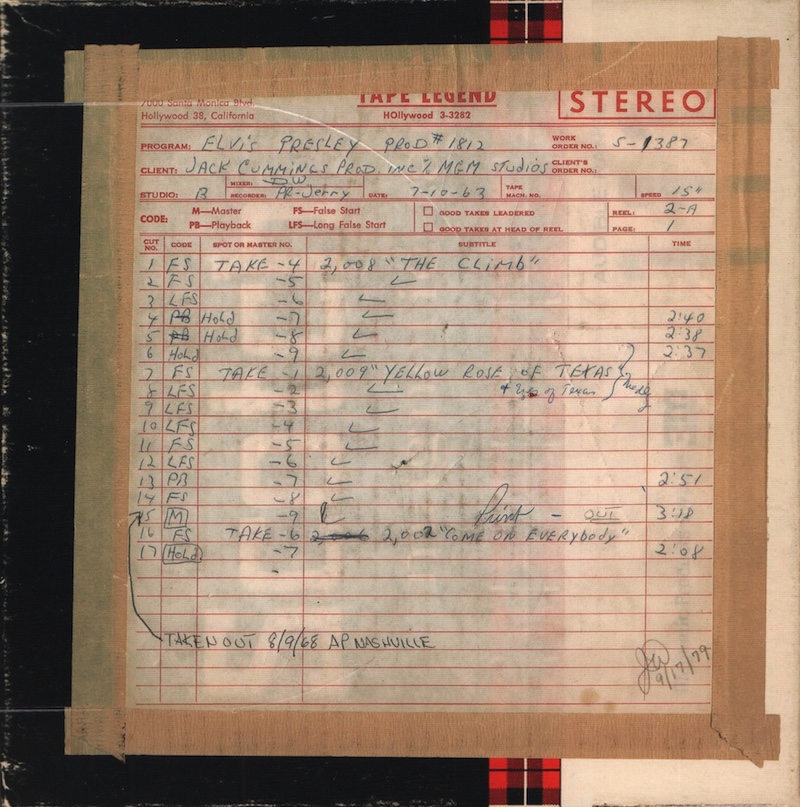 7000 Santa Monica Blvd.
Hollywood 38, California
TAPE LEGEND
HOllywood 3-3282
STEREO
PROGRAM: ELVIS PRESLEY PROD# 1812 WORK ORDER NO.: S-1387
CLIENT: JACK CUMMINGS PROD. INC % MGM STUDIOS CLIENT'S ORDER NO.:
STUDIO: B MIXER: DW RECORDER: PR-Jerry DATE: 7-10-63 TAPE MACH. NO. SPEED 15"
CODE: M—Master FS—False Start GOOD TAKES LEADERED REEL: 2-A
PB—Playback LFS—Long False Start GOOD TAKES AT HEAD OF REEL PAGE: 1
CUT NO. CODE SPOT OR MASTER NO. SUBTITLE TIME
1 FS TAKE -4 2,008 "THE CLIMB"
2 FS -5
3 LFS -6
4 PB Hold -7 2:40
5 PB Hold -8 2:38
6 Hold -9 2:37
7 FS TAKE -1 2,009 "YELLOW ROSE OF TEXAS
8 LFS -2 + Eyes of Texas } Medley
9 LFS -3
10 LFS -4
11 FS -5
12 LFS -6
13 PB -7 2:51
14 FS -8
15 M -9 Print - OUT 3:18
16 FS TAKE -6 2,006 2,002 "COME ON EVERYBODY"
17 Hold -7 2:08
TAKEN OUT 8/9/68 AP NASHVILLE
9/17/79